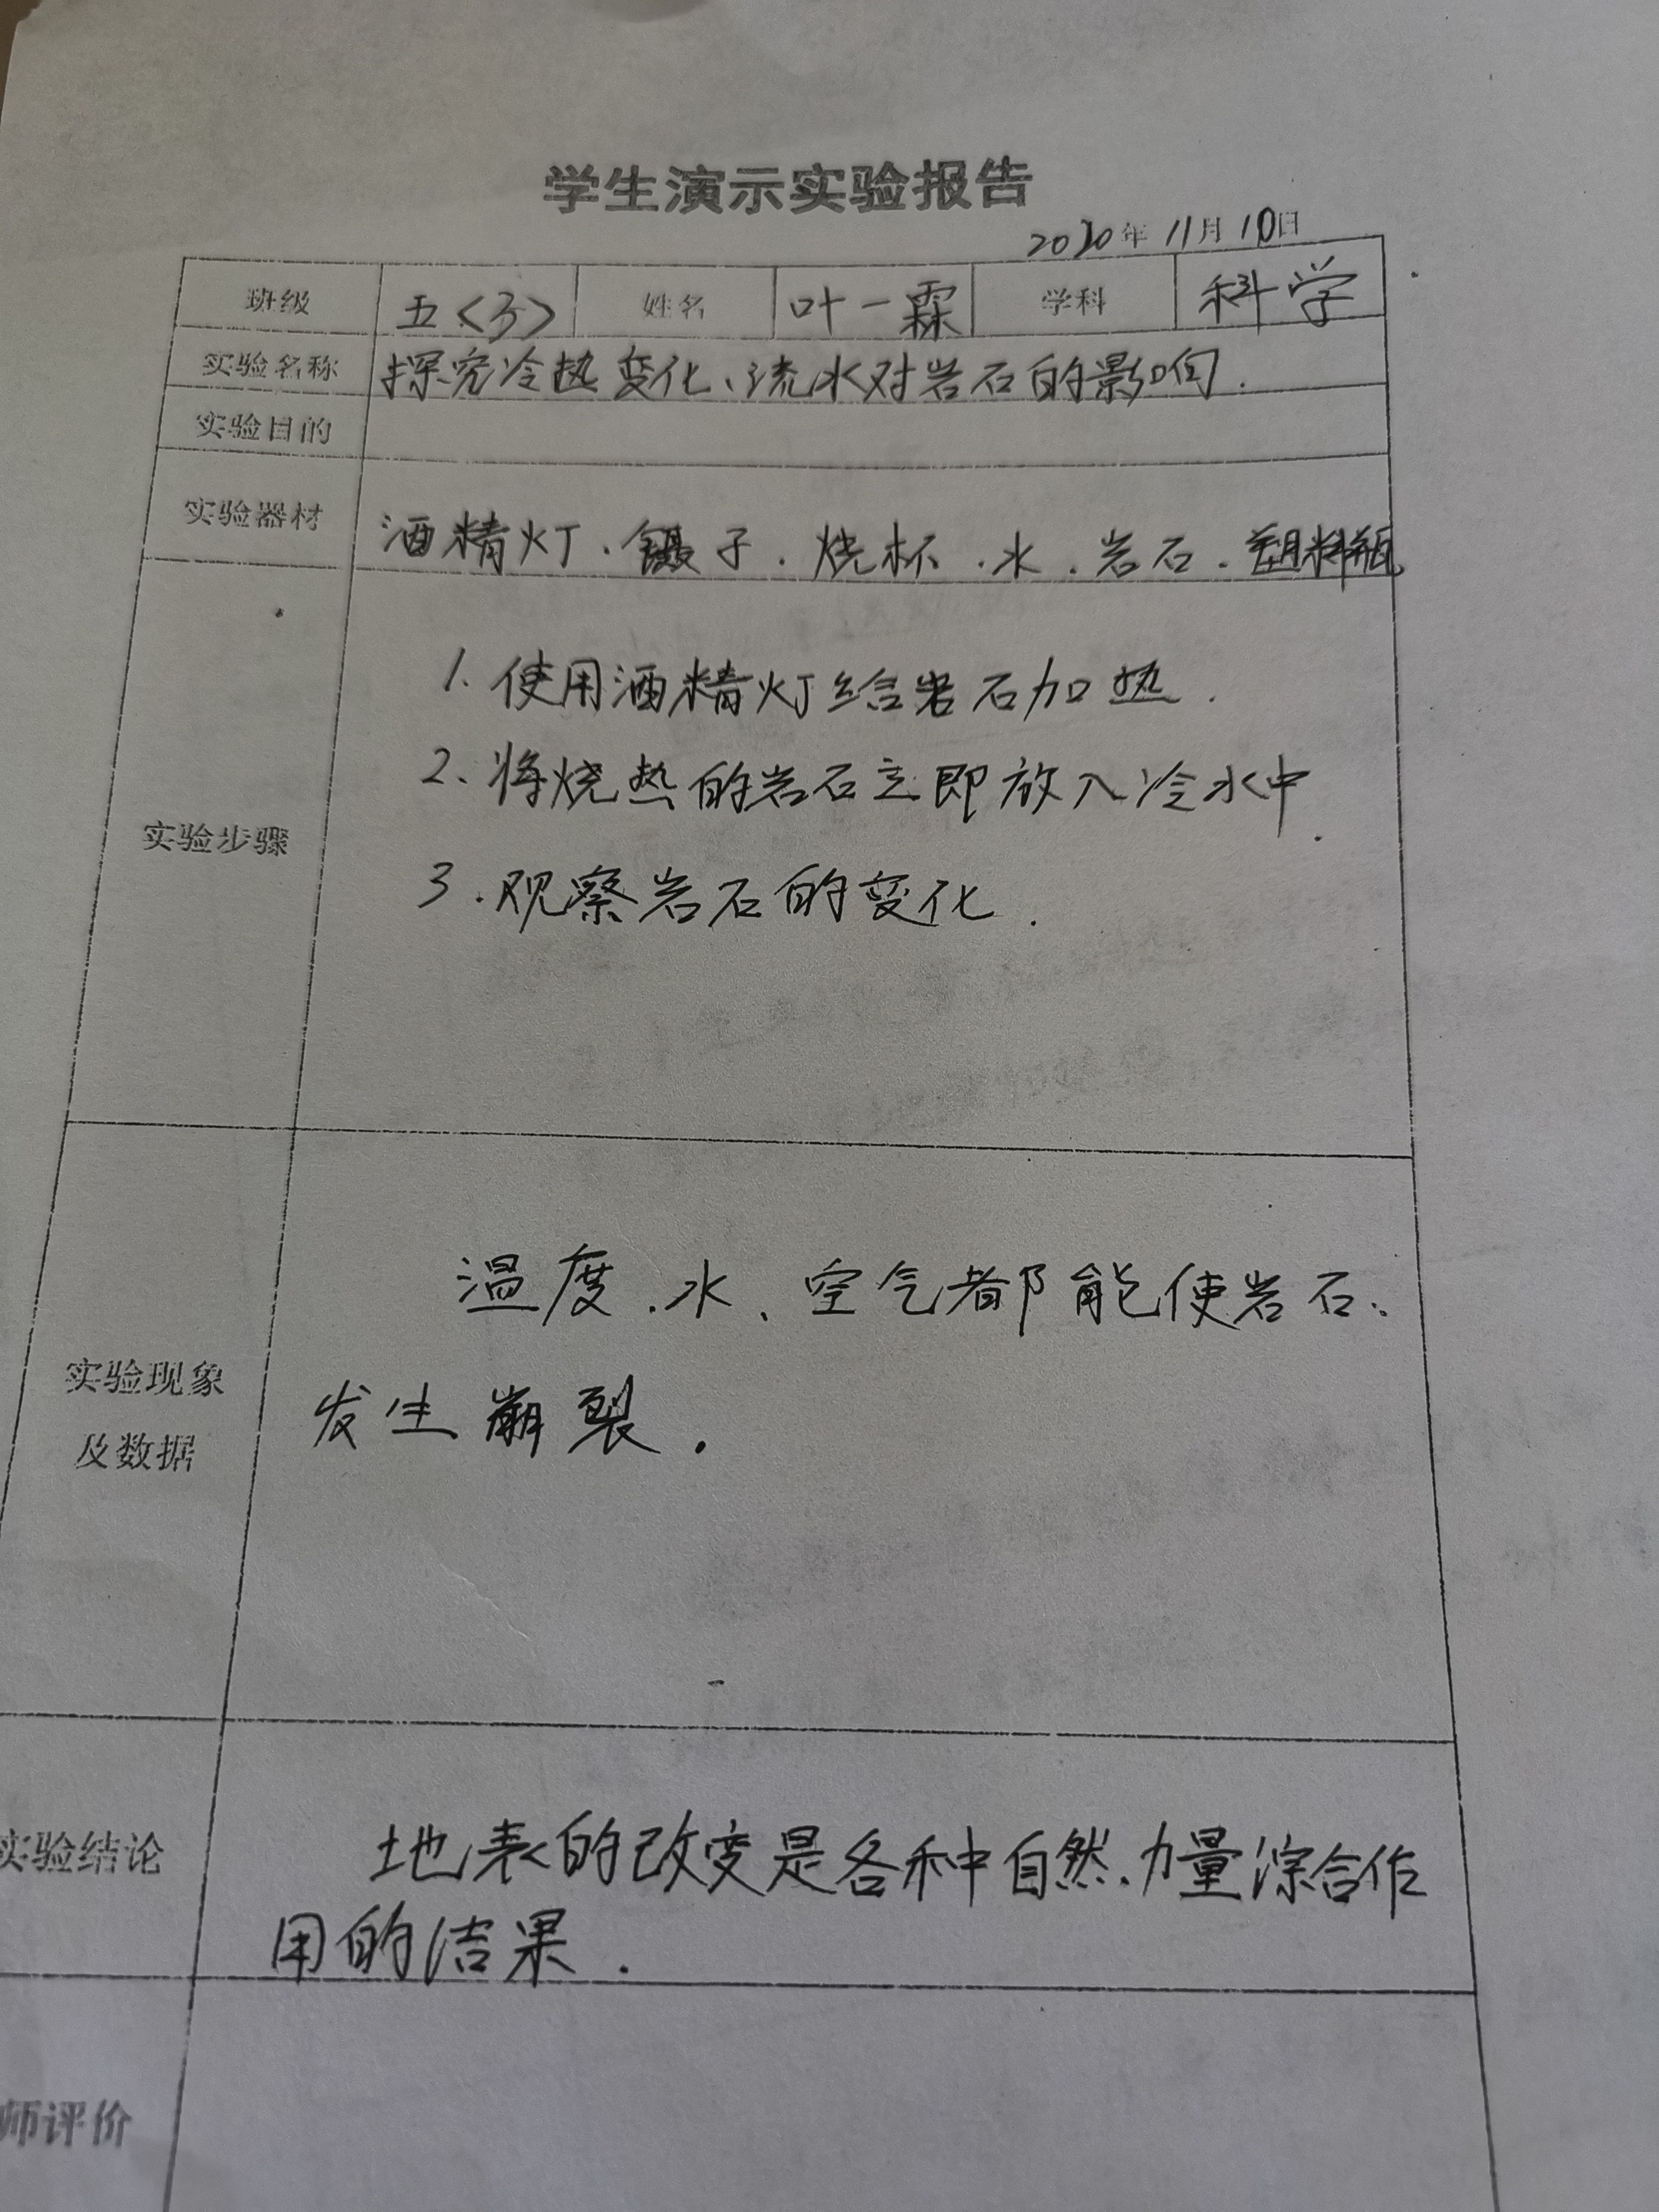 学生演示实验报告
2020年 11月 10日
班级 五<3> 姓名 叶一霖 学科 科学
实验名称 探究冷热变化、流水对岩石的影响.
实验目的
实验器材 酒精灯.镊子.烧杯.水.岩石.塑料瓶
1.使用酒精灯给岩石加热.
2、将烧热的岩石立即放入冷水中.
实验步骤
3.观察岩石的变化.
温度.水、空气都能使岩石、
实验现象
发生崩裂.
及数据
实验结论 地表的改变是各种自然.力量综合作
用的洁果.
师评价